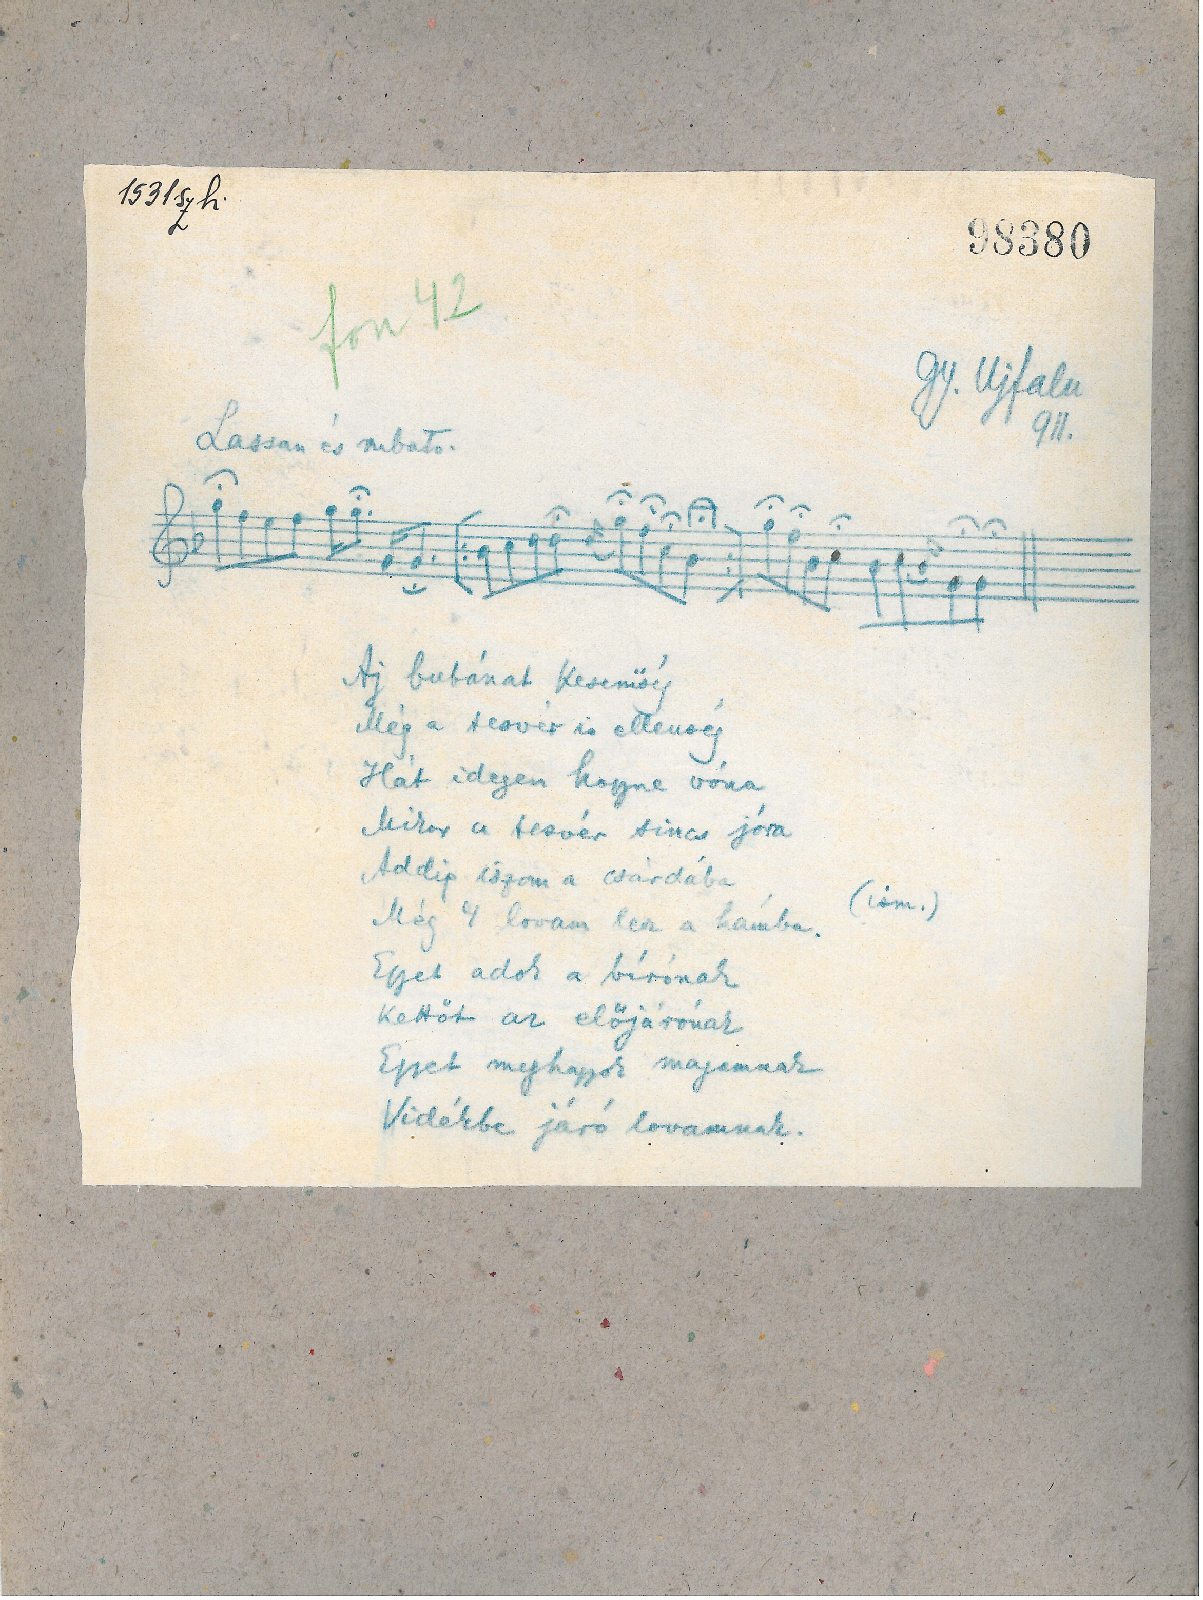 1531 szh.
98380
fon 42
Gy. Ujfalu
911.
Lassan és rubato.
Aj bubánat keserüség
Még a tesvér is ellenség
Hát idegen hogyne vóna
Mikor a tesvér sincs jóra
Addig iszom a csárdába
Még 4 lovam lesz a hámba.
(ism.)
Egyet adok a bírónak
Kettőt az előjárónak
Egyet meghagyok magamnak
Vidékbe járó lovamnak.